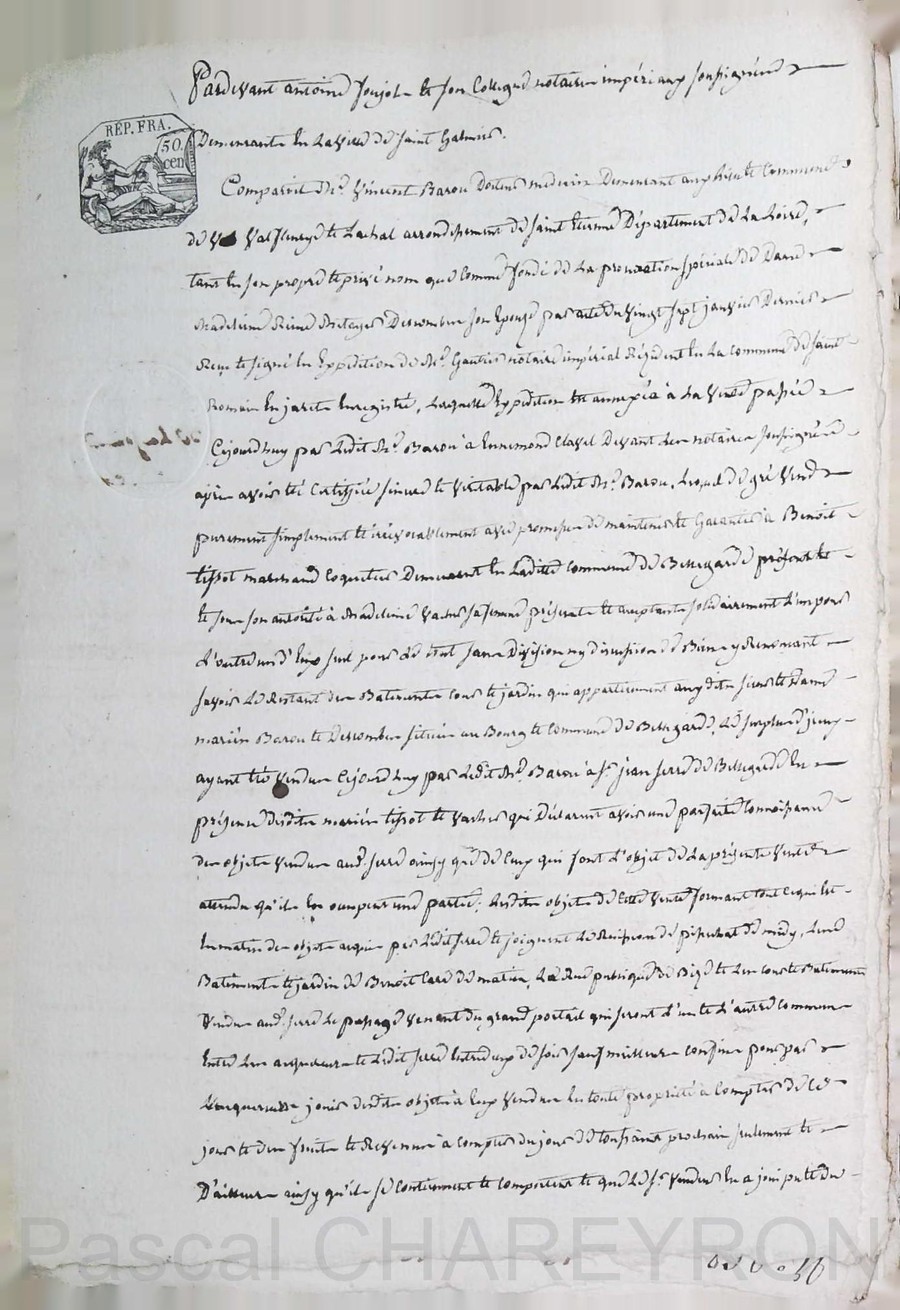 Pardevant antoine Joujot et son Collegue notaires impériaux soussignés
RÉP. FRA.
50.
cen
Demeurants en La Ville de Saint Galmier.
Comparut Mr. Vincent Barou Docteur medecin Demeurant aux lieu et Commune
de Valfleury et Lachal arrondissement de Saint Etienne Département de La Loire,
tant en son propre et privé nom que Comme fondé de La procuration spéciale de Dame
Madeleine Reine Descombes son Epouse par acte du Vingt Sept janvier Dernier
Reçu et signé en Expédition de Me. Gautier notaire impérial Résident en La Commune de Saint
Romain en jarêt Enregistré, Laquelle Expédition est annexée à La Vente passée
Cejourdhuy par Ledit Mr. Barou à Ennemond Clavel Devant Les notaires soussignés
après avoir été Certifiée sincere et Véritable par Ledit Mr. Barou, Lequel de gré Vend
purement simplement et irrévocablement avec promesse de maintenir et Garantir à Benoit
tissot marchand Coquetier Demeurant en Ladite Commune de Bellegarde présent et
et sous son autorité à Madeleine Vacher sa femme présente et acceptante solidairement L'un pour
L'autre un d'Eux seul pour Le tout sans Division ny discussion de Biens y Renonçant
savoir Le Restant des Batiments Cour et jardin qui appartiennent aux dits sieur et Dame
mariés Barou et Descombes situés au Bourg et Commune de Bellegarde, Le surplus d'iceux
ayant été Vendu Cejourdhuy par Ledit Mr. Barou à Sr. jean Serre de Bellegarde en
présence desdits mariés tissot et Vacher qui Déclarent avoir une parfaite Connoissance
des objets Vendus aud. Serre ainsy que de Ceux qui font L'objet de La présente Vente
attendu qu'ils en occupent une partie; Lesdits objets de Cette Vente formant tout Ce qui est
en matin des objets acquis par Ledit Serre et joignent de midy, Les
Batiments et jardin de Benoit Card de matin, La Rue publique de Bize et Les Cour et Batiments
Vendus aud. Serre Le passage Venant du grand portail qui seront L'un et L'autre Communs
Entre Les acquereurs et Ledit Serre Entre deux de soir sauf meilleurs Confins pour par
Les acquereurs jouir desdits objets à Eux Vendus en toute propriété à Compter de Ce
jour et des fruits et Revenus à Compter du jour de toussaint prochain seulement et
D'ailleurs ainsy qu'ils se Contiennent et Comportent et que Led. Sr. Vendeur en a joui pu et du
Pascal CHAREYRON